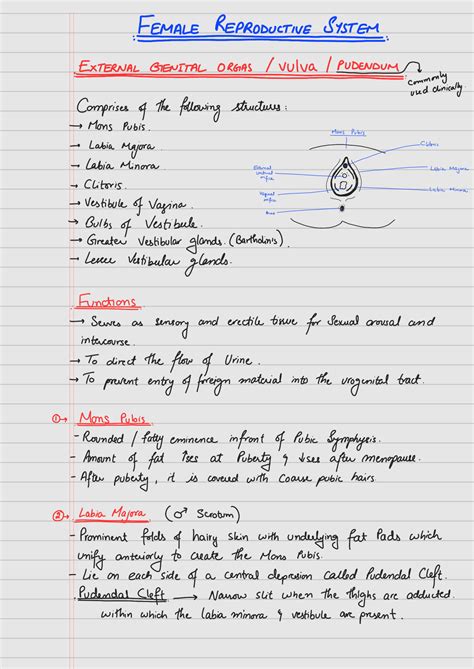 FEMALE REPRODUCTIVE SYSTEM
EXTERNAL GENITAL ORGAS / VULVA / PUDENDUM
Commonly
used clinically.
Comprises of the following structures:
→ Mons Pubis.
→ Labia Majora.
→ Labia Minora
→ Clitoris.
→ Vestibule of Vagina.
→ Bulbs of Vestibule.
→ Greater Vestibular glands. (Bartholin's)
→ Lesser Vestibular glands.
Mons Pubis
Clitoris
External
urethral
orifice
Labia Majora
Vaginal
orifice
Labia Minora
Anus
Functions
→ Serves as sensory and erectile tissue for Sexual arousal and
intercourse.
→ To direct the flow of Urine.
→ To prevent entry of foreign material into the urogenital tract.
①→ Mons Pubis
- Rounded / fatty eminence infront of Pubic Symphysis.
- Amount of fat ↑ses at Puberty & ↓ses after menopause.
- After puberty, it is covered with Coarse pubic hairs.
②→ Labia Majora (♂ Scrotum)
- Prominent folds of hairy skin with underlying fat Pads which
unify anteriorly to create the Mons Pubis.
- Lie on each side of a central depression called Pudendal Cleft.
Pudendal Cleft → Narrow slit when the thighs are adducted
within which the labia minora & vestibule are present.